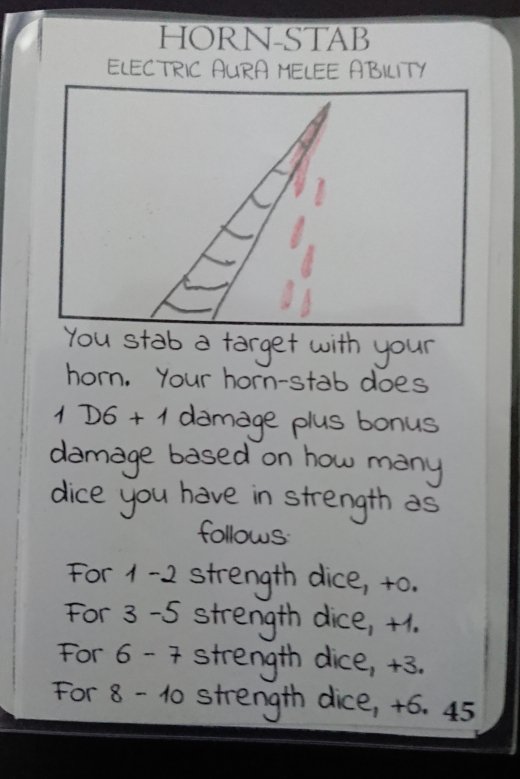 HORN-STAB
ELECTRIC AURA MELEE ABILITY
You stab a target with your
horn. Your horn-stab does
1 D6 + 1 damage plus bonus
damage based on how many
dice you have in strength as
follows:
For 1 - 2 strength dice, +0.
For 3 - 5 strength dice, +1.
For 6 - 7 strength dice, +3.
For 8 - 10 strength dice, +6. 45